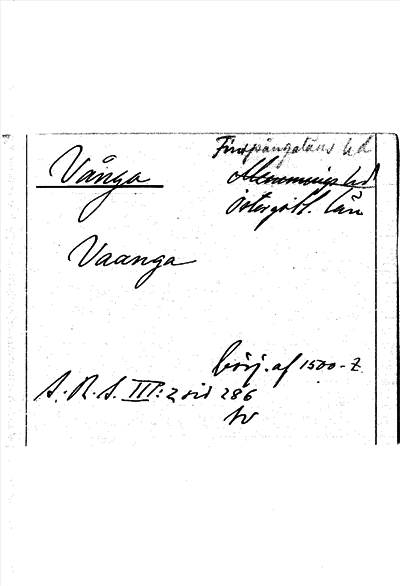 Vånga
Finspångaläns hd
Memmings hd
Östergötl. län
Vaanga
börj. af 1500-t.
S.R.S. III:2 sid 286